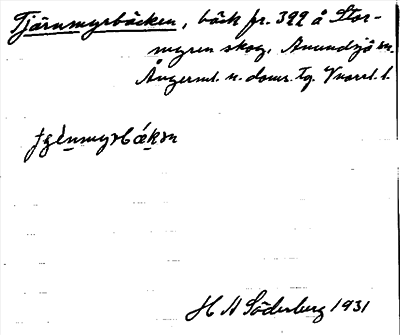 Tjärnmyrbäcken, bäck fr. 322 å Stor-
myren skog, Anundsjö sn.
Ångerml. n. doms. Tg. Vnorrl. l.
H A Söderberg 1931